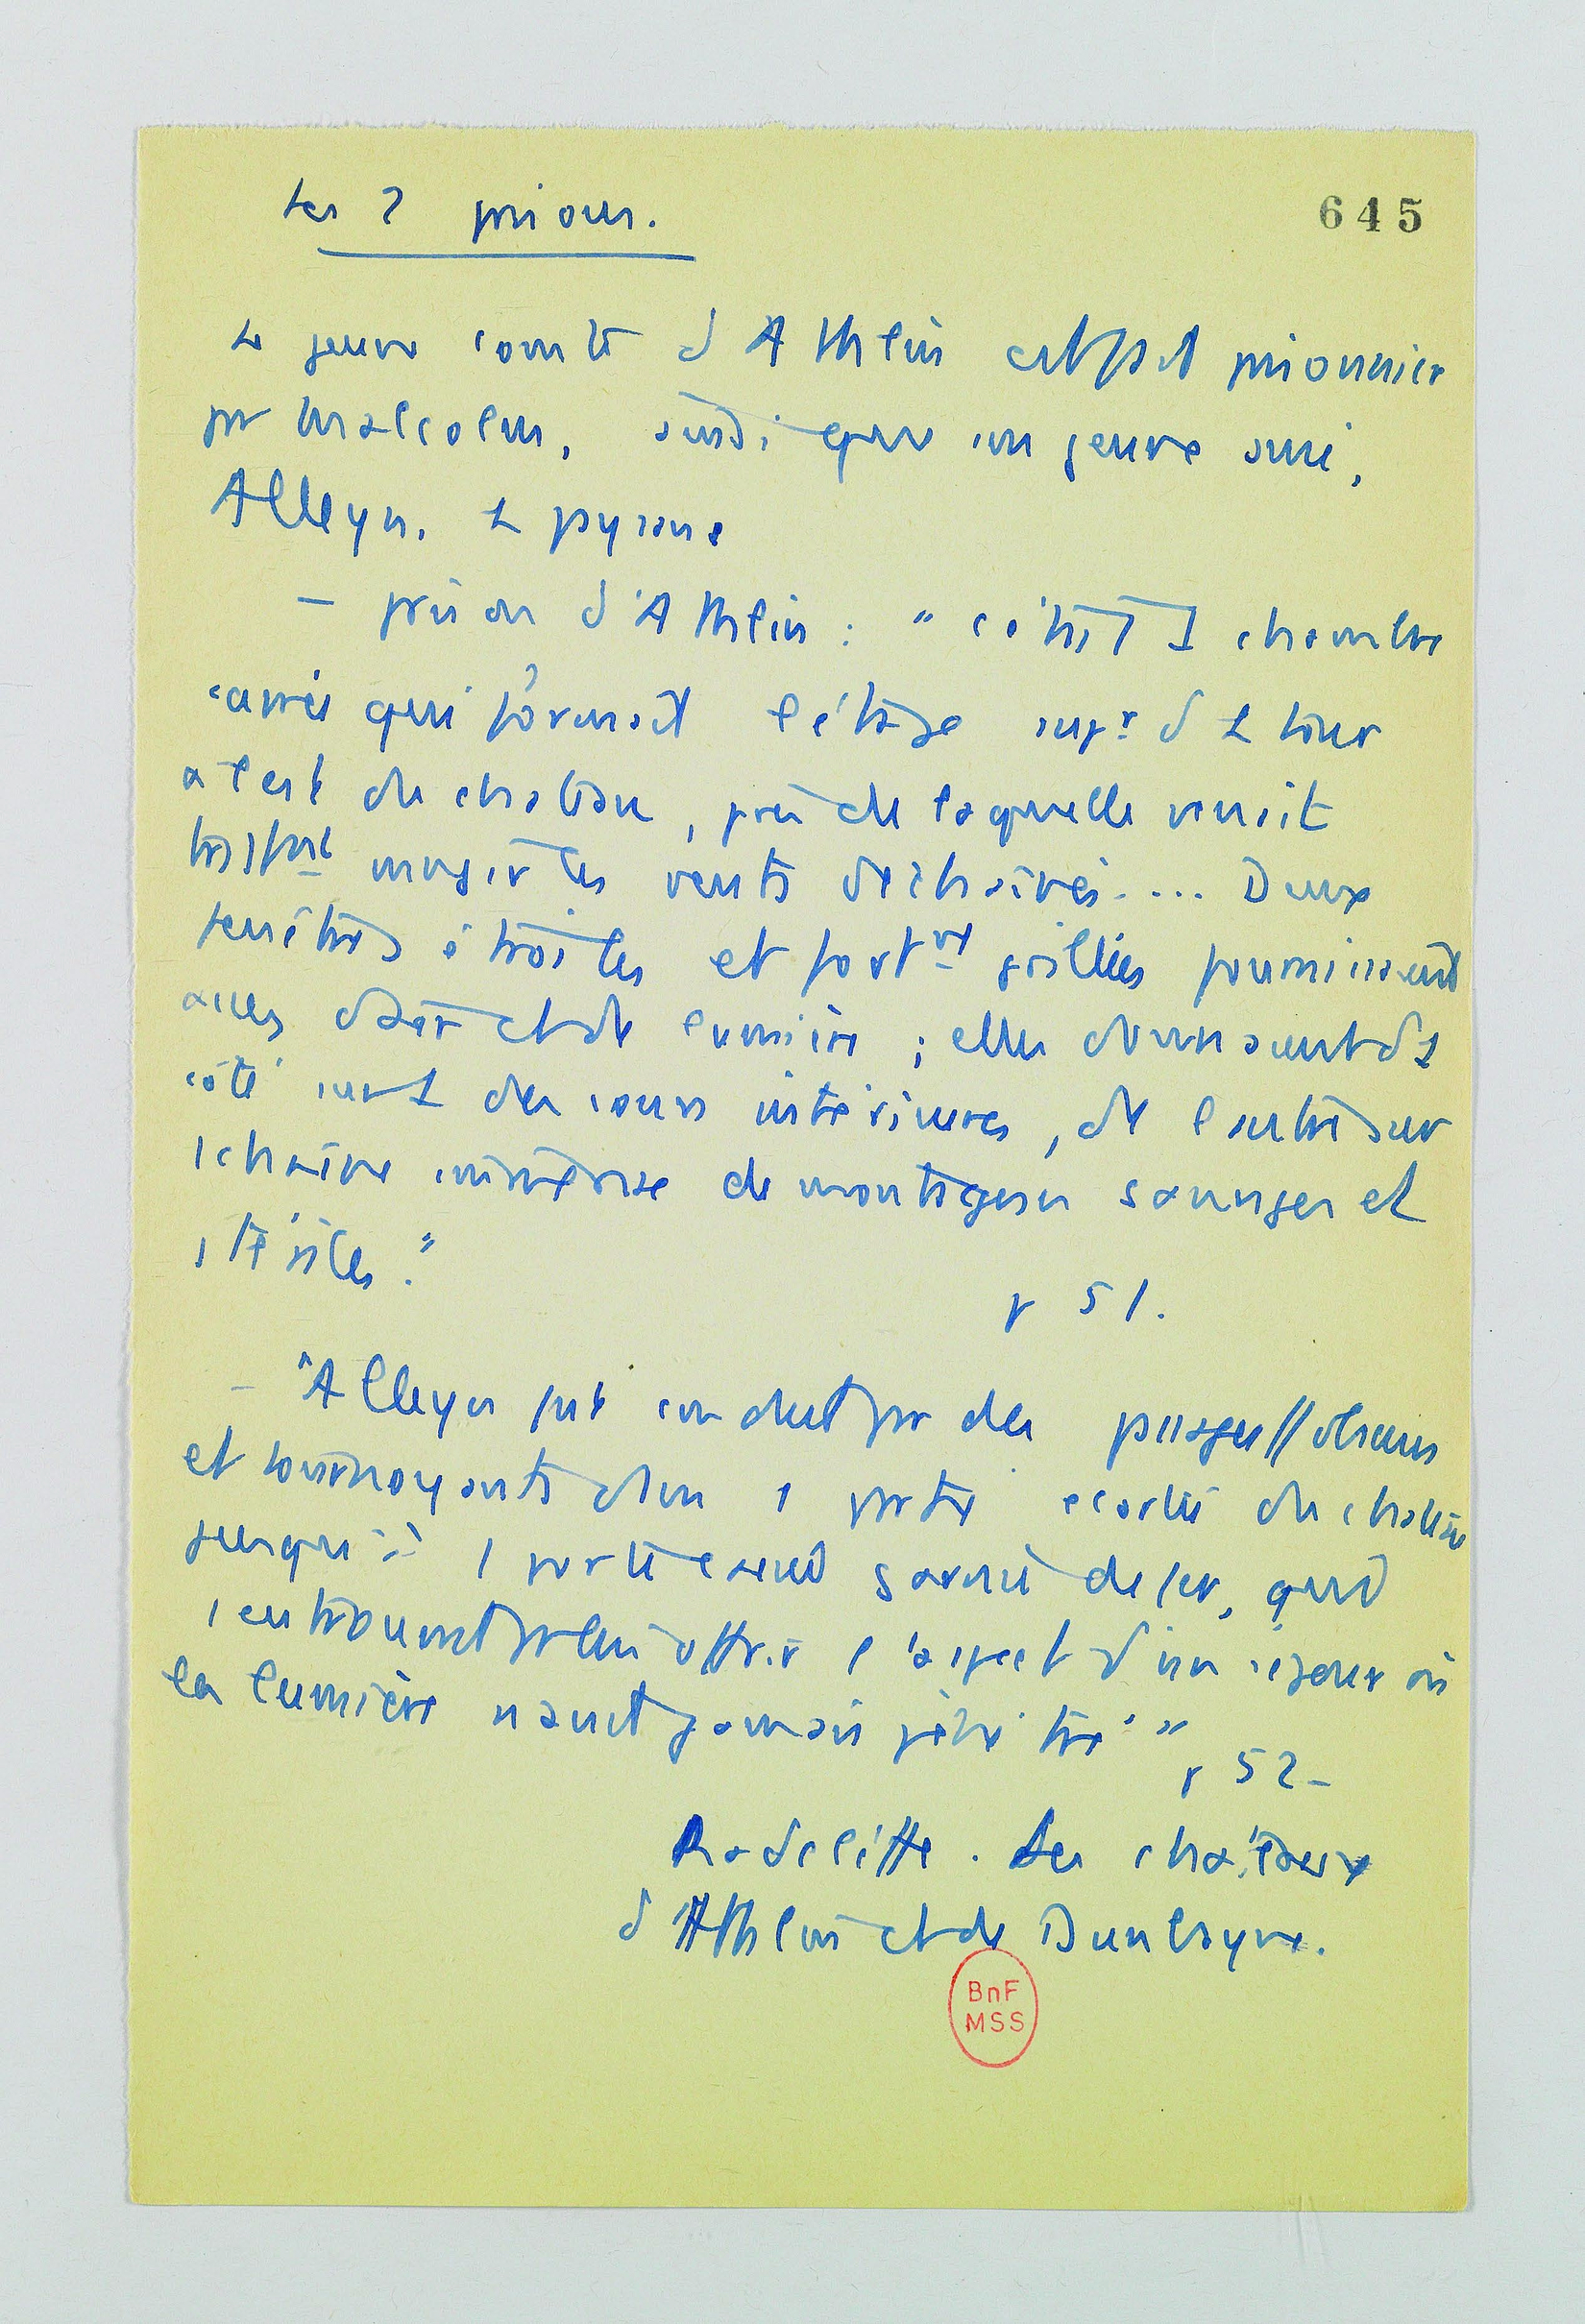 Les 2 prisons.
645
Le jeune comte d'Athlin est fait prisonnier
par Malcolm, ainsi que son jeune ami,
Alleyn. Le paysan
– prison d'Athlin : " c'était 1 chambre
carrée qui formait l'étage supr de la tour
à l'est du chateau, près de laquelle venait
tristmt mugir les vents déchainés.... Deux
fenêtres étroites et fortmt grillées fournissaient
assez d'air et de lumière ; elles donnaient d'1
côté sur 1 des cours intérieures, de l'autre sur
1 chaine immense de montagnes sauvages et
stériles."
p 51.
– "Alleyn fut conduit par des passages obscurs
et tournoyants dans 1 partie écartée du chateau
jusqu'à 1 porte garnie de fer, qui
s'entrouvrit pr lui offrir l'aspect d'un séjour où
la lumière n'avait jamais pénétré "
p 52 –
Radcliffe. Les chateaux
d'Athlin et de Dunbayne.
BnF
MSS